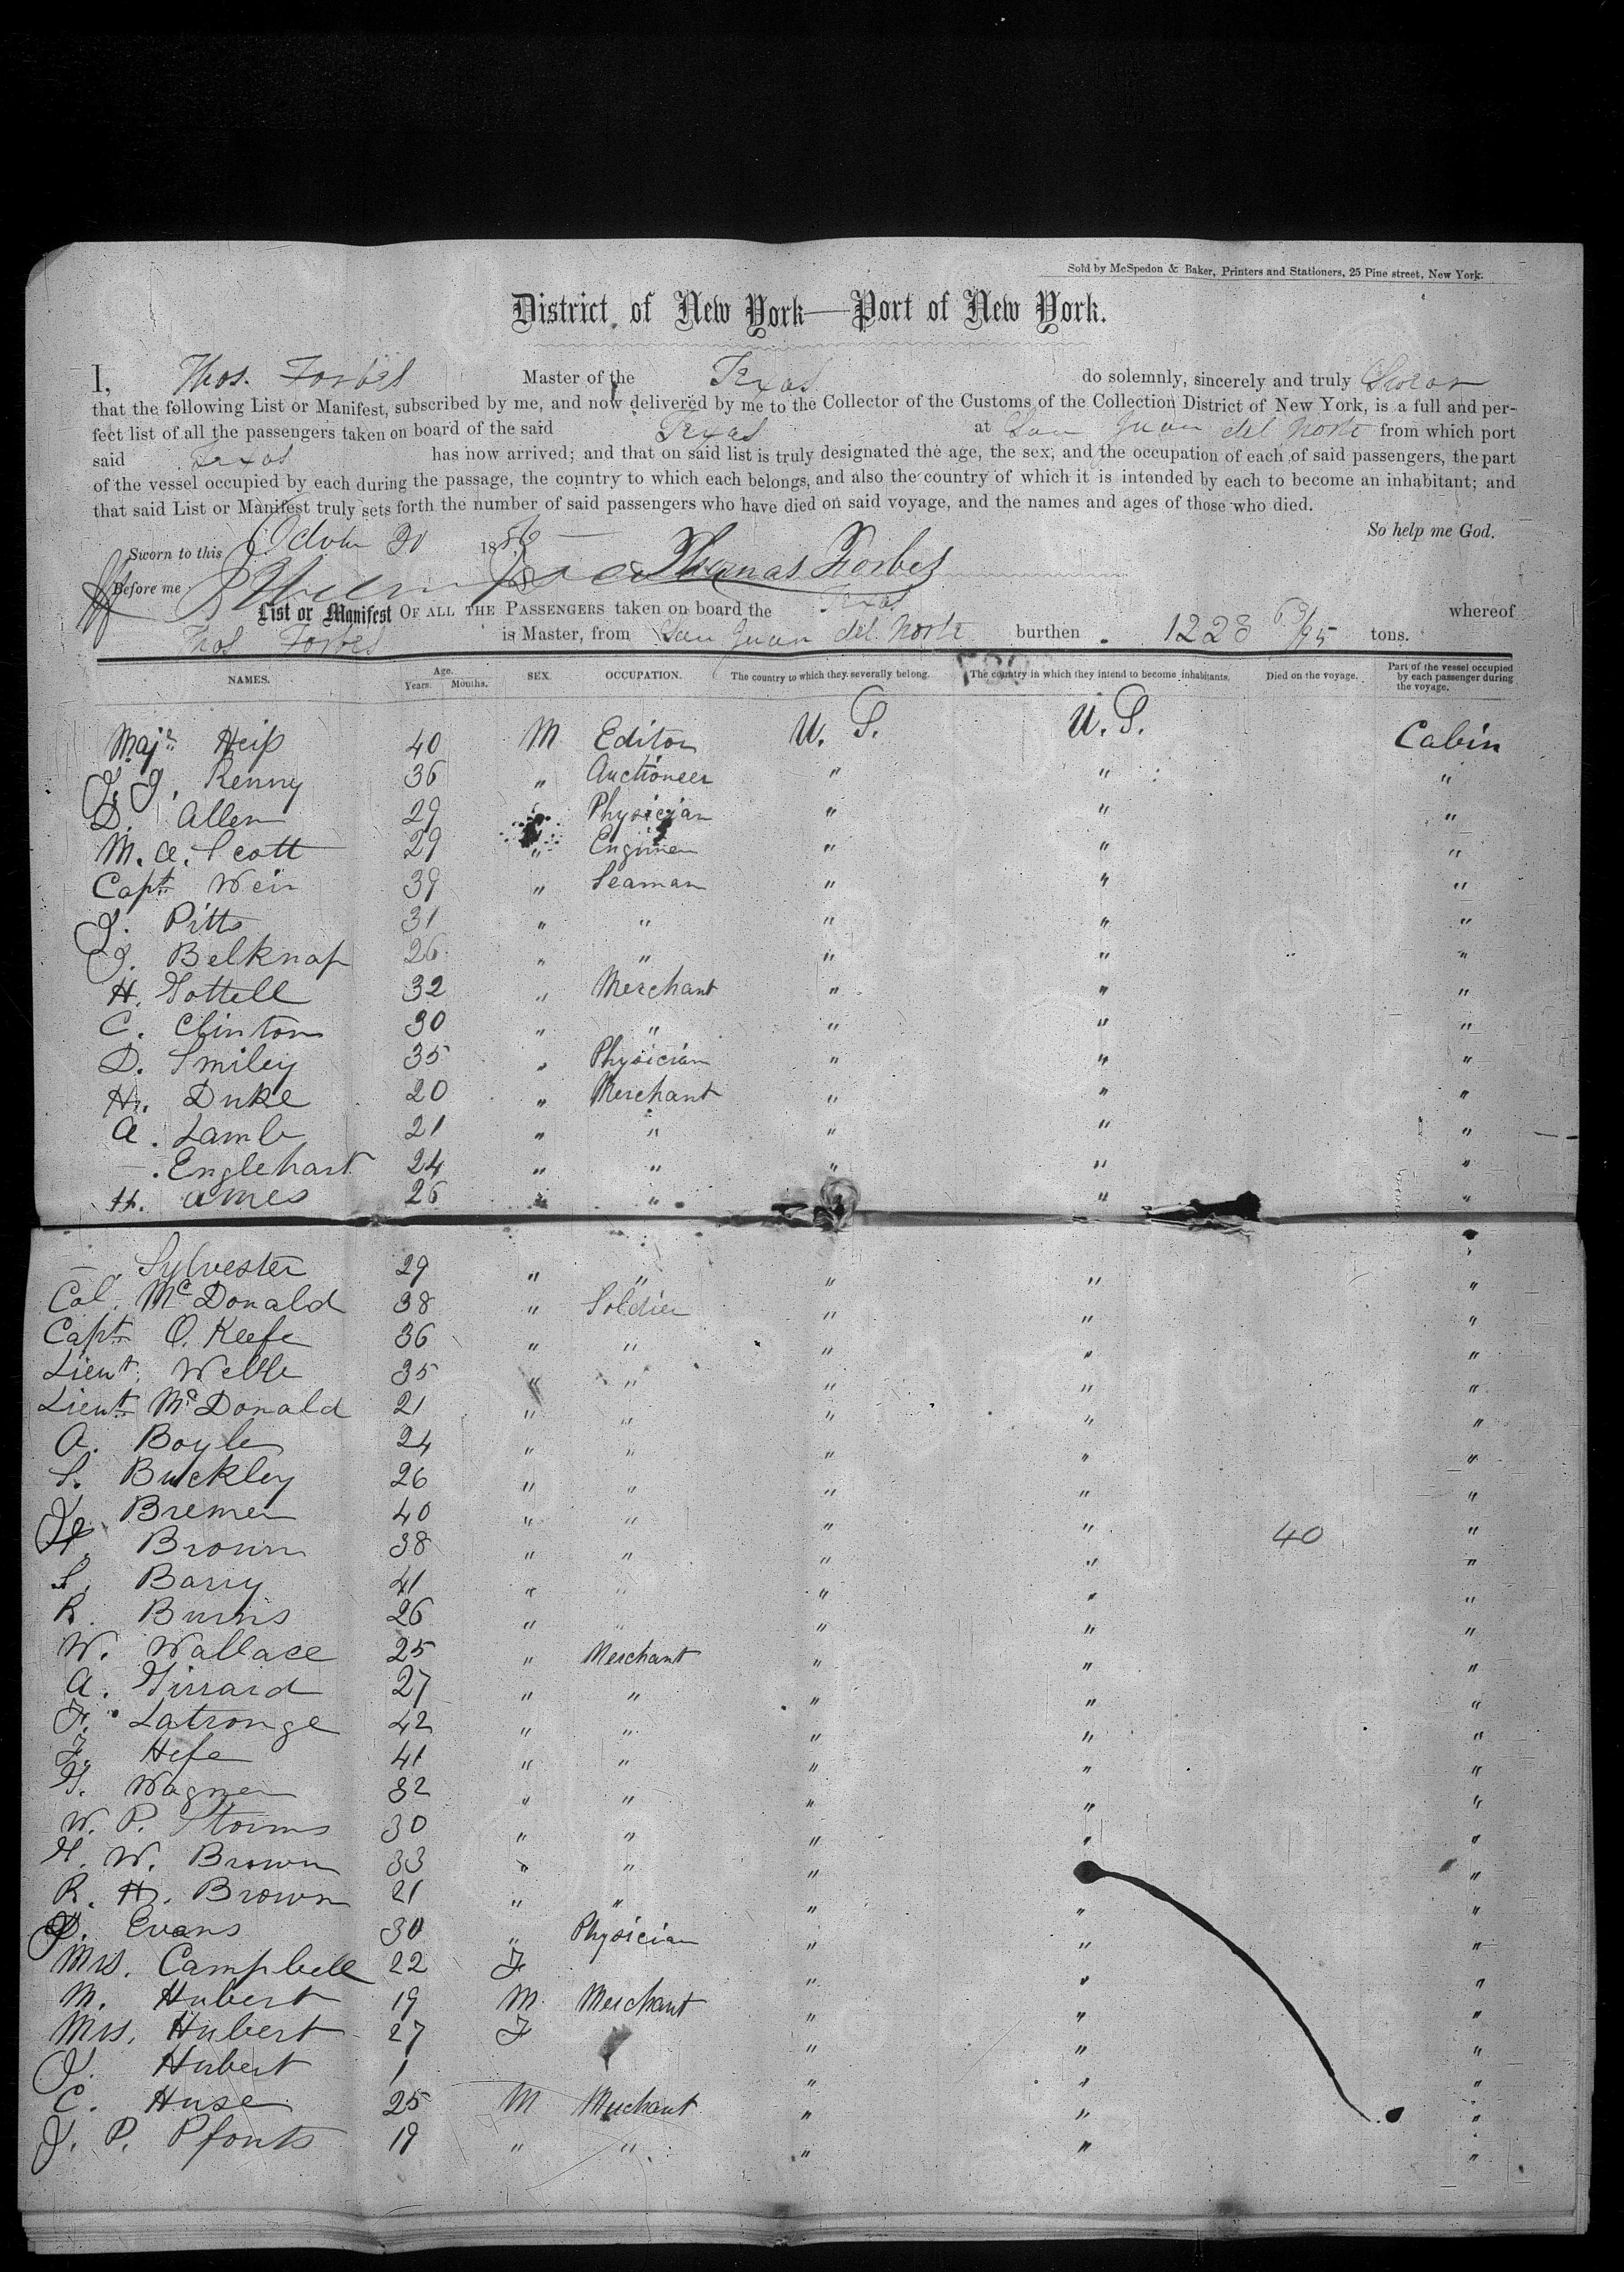 Sold by McSpedon & Baker, Printers and Stationers, 25 Pine street, New York.
District of New York—Port of New York.
I, Thos. Forbes Master of the Texas do solemnly, sincerely and truly Swear
that the following List or Manifest, subscribed by me, and now delivered by me to the Collector of the Customs of the Collection District of New York, is a full and per-
fect list of all the passengers taken on board of the said Texas at San Juan del Norte from which port
said Texas has now arrived; and that on said list is truly designated the age, the sex, and the occupation of each of said passengers, the part
of the vessel occupied by each during the passage, the country to which each belongs, and also the country of which it is intended by each to become an inhabitant; and
that said List or Manifest truly sets forth the number of said passengers who have died on said voyage, and the names and ages of those who died.
So help me God.
Sworn to this October 30 1856
Before me Thomas Forbes
List or Manifest OF ALL THE PASSENGERS taken on board the Texas whereof
Thos Forbes is Master, from San Juan del Norte burthen 1223 63/95 tons.
NAMES. Age. Years. Months. SEX. OCCUPATION. The country to which they severally belong. The country in which they intend to become inhabitants. Died on the voyage. Part of the vessel occupied by each passenger during the voyage.
Majr Heiss 40 M Editor U. S. U. S. Cabin
J. J. Kenny 36 " Auctioneer " " "
D. Allen 29 Physician " " "
M. A. Scott 29 " Engineer " " "
Capt. Weir 39 " Seaman " " "
J. Pitts 31 " " " " "
J. Belknap 26 " " " " "
H. Gottell 32 " Merchant " " "
C. Clinton 30 " " " " "
D. Smiley 35 " Physician " " "
H. Duke 20 " Merchant " " "
A. Lamb 21 " " " " "
—. Englehart 24 " " " " "
H. Ames 26 " " " "
—. Sylvester 29 " " " " "
Col. McDonald 38 " Soldier " " "
Capt. O. Keefe 36 " " " " "
Lieut. Webb 35 " " " " "
Lieut. McDonald 21 " " " " "
A. Boyle 24 " " " " "
S. Buckley 26 " " " " "
J. Bremer 40 " " " " "
H. Brown 38 " " " " 40 "
S. Barry 41 " " " " "
R. Burns 26 " " " " "
W. Wallace 25 " Merchant " " "
A. Girrard 27 " " " " "
F. Latronge 42 " " " " "
F. Hefe 41 " " " " "
G. Wagner 32 " " " " "
W. P. Storms 30 " " " " "
G. W. Brown 33 " " " "
R. H. Brown 21 " " " " "
D. Evans 30 " Physician " " "
Mrs. Campbell 22 F " " "
M. Hubert 19 M Merchant " " "
Mrs. Hubert 27 F " " "
J. Hubert 1 " " "
C. Huse 25 M Merchant " " "
J. P. Pfouts 19 " " " " "